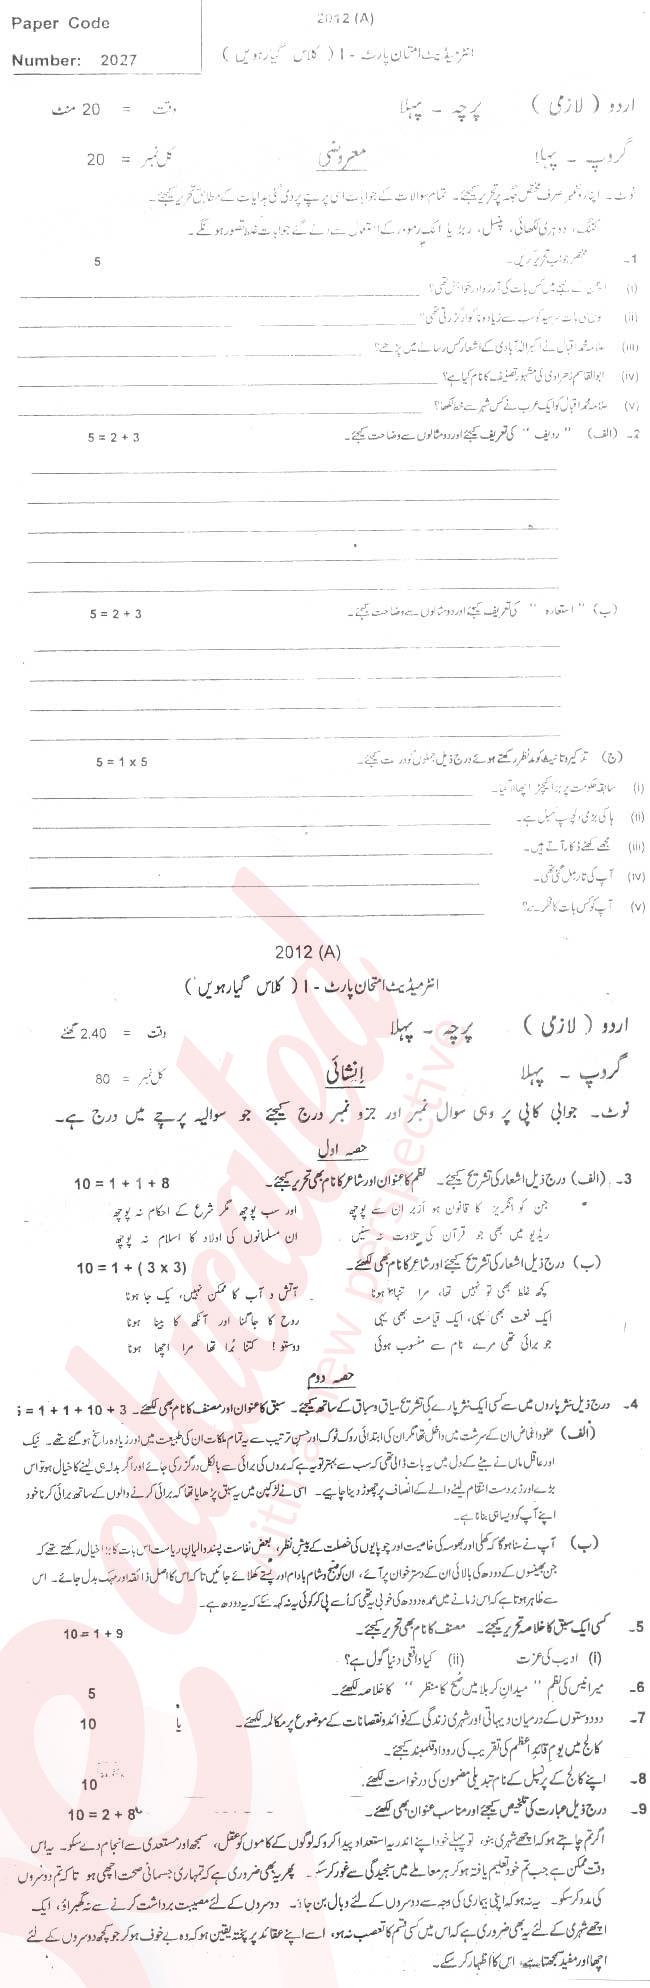 Paper Code
Number: 2027
2012 (A)
انٹرمیڈیٹ امتحان پارٹ - I ( کلاس گیارہویں )
اردو ( لازمی ) پرچہ - پہلا وقت = 20 منٹ
گروپ - پہلا معروضی کل نمبر = 20
نوٹ - اپنا رولنمبر صرف مختص جگہ پر تحریر کیجئے - تمام سوالات کے جوابات اسی پرچے پر دی گئی ہدایات کے مطابق تحریر کیجئے -
کٹنگ، دوہری لکھائی، پنسل، ربڑ یا انک ریموور کے استعمال سے دئے گئے جوابات غلط تصور ہونگے -
1- مختصر جواب تحریر کریں - 5
(i) کے میں کس بات کی آرزو اور خواہش تھی؟
(ii) کون سی بات سرسید کو سب سے زیادہ ناگوار گزرتی تھی؟
(iii) علامہ محمد اقبال نے اکبر الہ آبادی کے اشعار کس رسالے میں پڑھے؟
(iv) ابوالقاسم زہراوی کی مشہور تصنیف کا نام کیا ہے؟
(v) علامہ محمد اقبال کو ایک عرب نے کس شہر سے خط لکھا؟
2- (الف) " ردیف " کی تعریف کیجئے اور دو مثالوں سے وضاحت کیجئے - 5 = 2 + 3
(ب) " استعارہ " کی تعریف کیجئے اور دو مثالوں سے وضاحت کیجئے - 5 = 2 + 3
(ج) تذکیر و تانیث کو مدنظر رکھتے ہوئے درج ذیل جملوں کو درست کیجئے - 5 = 1 x 5
(i) سابقہ حکومت پر بڑا کیچڑ اچھالا گیا -
(ii) ہاکی بڑی دلچسپ کھیل ہے -
(iii) مجھے کھٹے ڈکار آتے ہیں -
(iv) آپ کی تار مل گئی تھی -
(v) آپ کو کس بات کا فکر ہے؟
2012 (A)
انٹرمیڈیٹ امتحان پارٹ - I ( کلاس گیارہویں )
اردو ( لازمی ) پرچہ - پہلا وقت = 2.40 گھنٹے
گروپ - پہلا اِنشائی کل نمبر = 80
نوٹ - جوابی کاپی پر وہی سوال نمبر اور جزو نمبر درج کیجئے جو سوالیہ پرچے میں درج ہے -
حصہ اول
3- (الف) درج ذیل اشعار کی تشریح کیجئے - نظم کا عنوان اور شاعر کا نام بھی تحریر کیجئے - 10 = 1 + 1 + 8
جن کو انگریز کا قانون ہو ازبر ان سے پوچھ اور سب پوچھ مگر شرع کے احکام نہ پوچھ
ریڈیو میں بھی جو قرآن کی تلاوت نہ سنیں ان مسلمانوں کی اولاد کا اسلام نہ پوچھ
(ب) درج ذیل اشعار کی تشریح کیجئے اور شاعر کا نام بھی لکھئے - 10 = 1 + ( 3 x 3)
کچھ غلط بھی تو نہیں تھا، مرا تنہا ہونا آتش و آب کا ممکن نہیں، یک جا ہونا
ایک نعمت بھی یہی، ایک قیامت بھی یہی روح کا جاگنا اور آنکھ کا بینا ہونا
جو برائی تھی مرے نام سے منسوب ہوئی دوستو! کتنا بُرا تھا مرا اچھا ہونا
حصہ دوم
4- درج ذیل نثر پاروں میں سے کسی ایک نثر پارے کی تشریح سیاق و سباق کے ساتھ کیجئے - سبق کا عنوان اور مصنف کا نام بھی لکھئے - 5 = 1 + 1 + 10 + 3
(الف) عفو و اغماض ان کے سرشت میں داخل تھا مگر ان کی ابتدائی روک ٹوک اور حسنِ ترتیب سے یہ تمام ملکات ان کی طبیعت میں اور زیادہ راسخ ہو گئے تھے - نیک
اور عاقل ماں نے بیٹے کے دل میں یہ بات ڈالی تھی کہ سب سے بہتر تو یہ ہے کہ بروں کی برائی سے بالکل درگزر کی جائے اور اگر بدلہ ہی لینے کا خیال ہو تو اس
بڑے اور زبردست انتقام لینے والے کے انصاف پر چھوڑ دینا چاہیے - اسی نے لڑکپن میں یہ سبق پڑھایا تھا کہ برائی کرنے والوں کے ساتھ برائی کرنا خود
اپنے آپ کو ویسا ہی بنانا ہے -
(ب) آپ نے سنا ہو گا کہ کھلی اور بھوسہ کی خاصیت اور چوپایوں کی خصلت کے پیشِ نظر، بعض نفاست پسند والیانِ ریاست اس بات کا بڑا خیال رکھتے تھے کہ
جن بھینسوں کے دودھ کی بالائی ان کے دسترخوان پر آئے، ان کو صبح و شام بادام اور پستے کھلائے جائیں تاکہ اس کا اصل ذائقہ اور مہک بدل جائے - اس
سے ظاہر ہوتا ہے کہ اس زمانے میں عمدہ دودھ کی خوبی یہ تھی کہ اُسے پی کر کوئی یہ نہ کہہ سکے کہ یہ دودھ ہے -
5- کسی ایک سبق کا خلاصہ تحریر کیجئے - مصنف کا نام بھی تحریر کیجئے - 10 = 1 + 9
(i) ادیب کی عزت (ii) کیا واقعی دنیا گول ہے؟
6- میر انیس کی نظم " میدانِ کربلا میں صُبح کا منظر " کا خلاصہ لکھئے - 5
7- دو دوستوں کے درمیان دیہاتی اور شہری زندگی کے فوائد و نقصانات کے موضوع پر مکالمہ لکھئے - یا 10
کالج میں یومِ قائدِ اعظم کی تقریب کی روداد قلمبند کیجئے -
8- اپنے کالج کے پرنسپل کے نام تبدیلی مضمون کی درخواست لکھئے - 10
9- درج ذیل عبارت کی تلخیص کیجئے اور مناسب عنوان بھی لکھئے - 10 = 2 + 8
اگر تم چاہتے ہو کہ اچھے شہری بنو، تو پہلے خود اپنے اندر یہ استعداد پیدا کرو کہ لوگوں کے کاموں کو عقل، سمجھ اور مستعدی سے انجام دے سکو - یہ اس
وقت ممکن ہے جب تم خود تعلیم یافتہ ہو کر ہر معاملے میں سنجیدگی سے غور کر سکو - پھر یہ بھی ضروری ہے کہ تمہاری جسمانی صحت اچھی ہو تاکہ تم دوسروں
کی مدد کر سکو - یہ نہ ہو کہ اپنی بیماری کی وجہ سے دوسروں کے لئے وبال بن جاؤ - دوسروں کے لئے مصیبت برداشت کرنے سے نہ گھبراؤ، ایک
اچھے شہری کے لئے یہ بھی ضروری ہے کہ اس میں کسی قسم کا تعصب نہ ہو، اسے اپنے عقائد پر پختہ یقین ہو کہ وہ بے خوف ہو کر جو کچھ دوسروں کے لئے
اچھا اور مفید سمجھتا ہے، اس کا اظہار کر سکے -
educated
with a new perspective